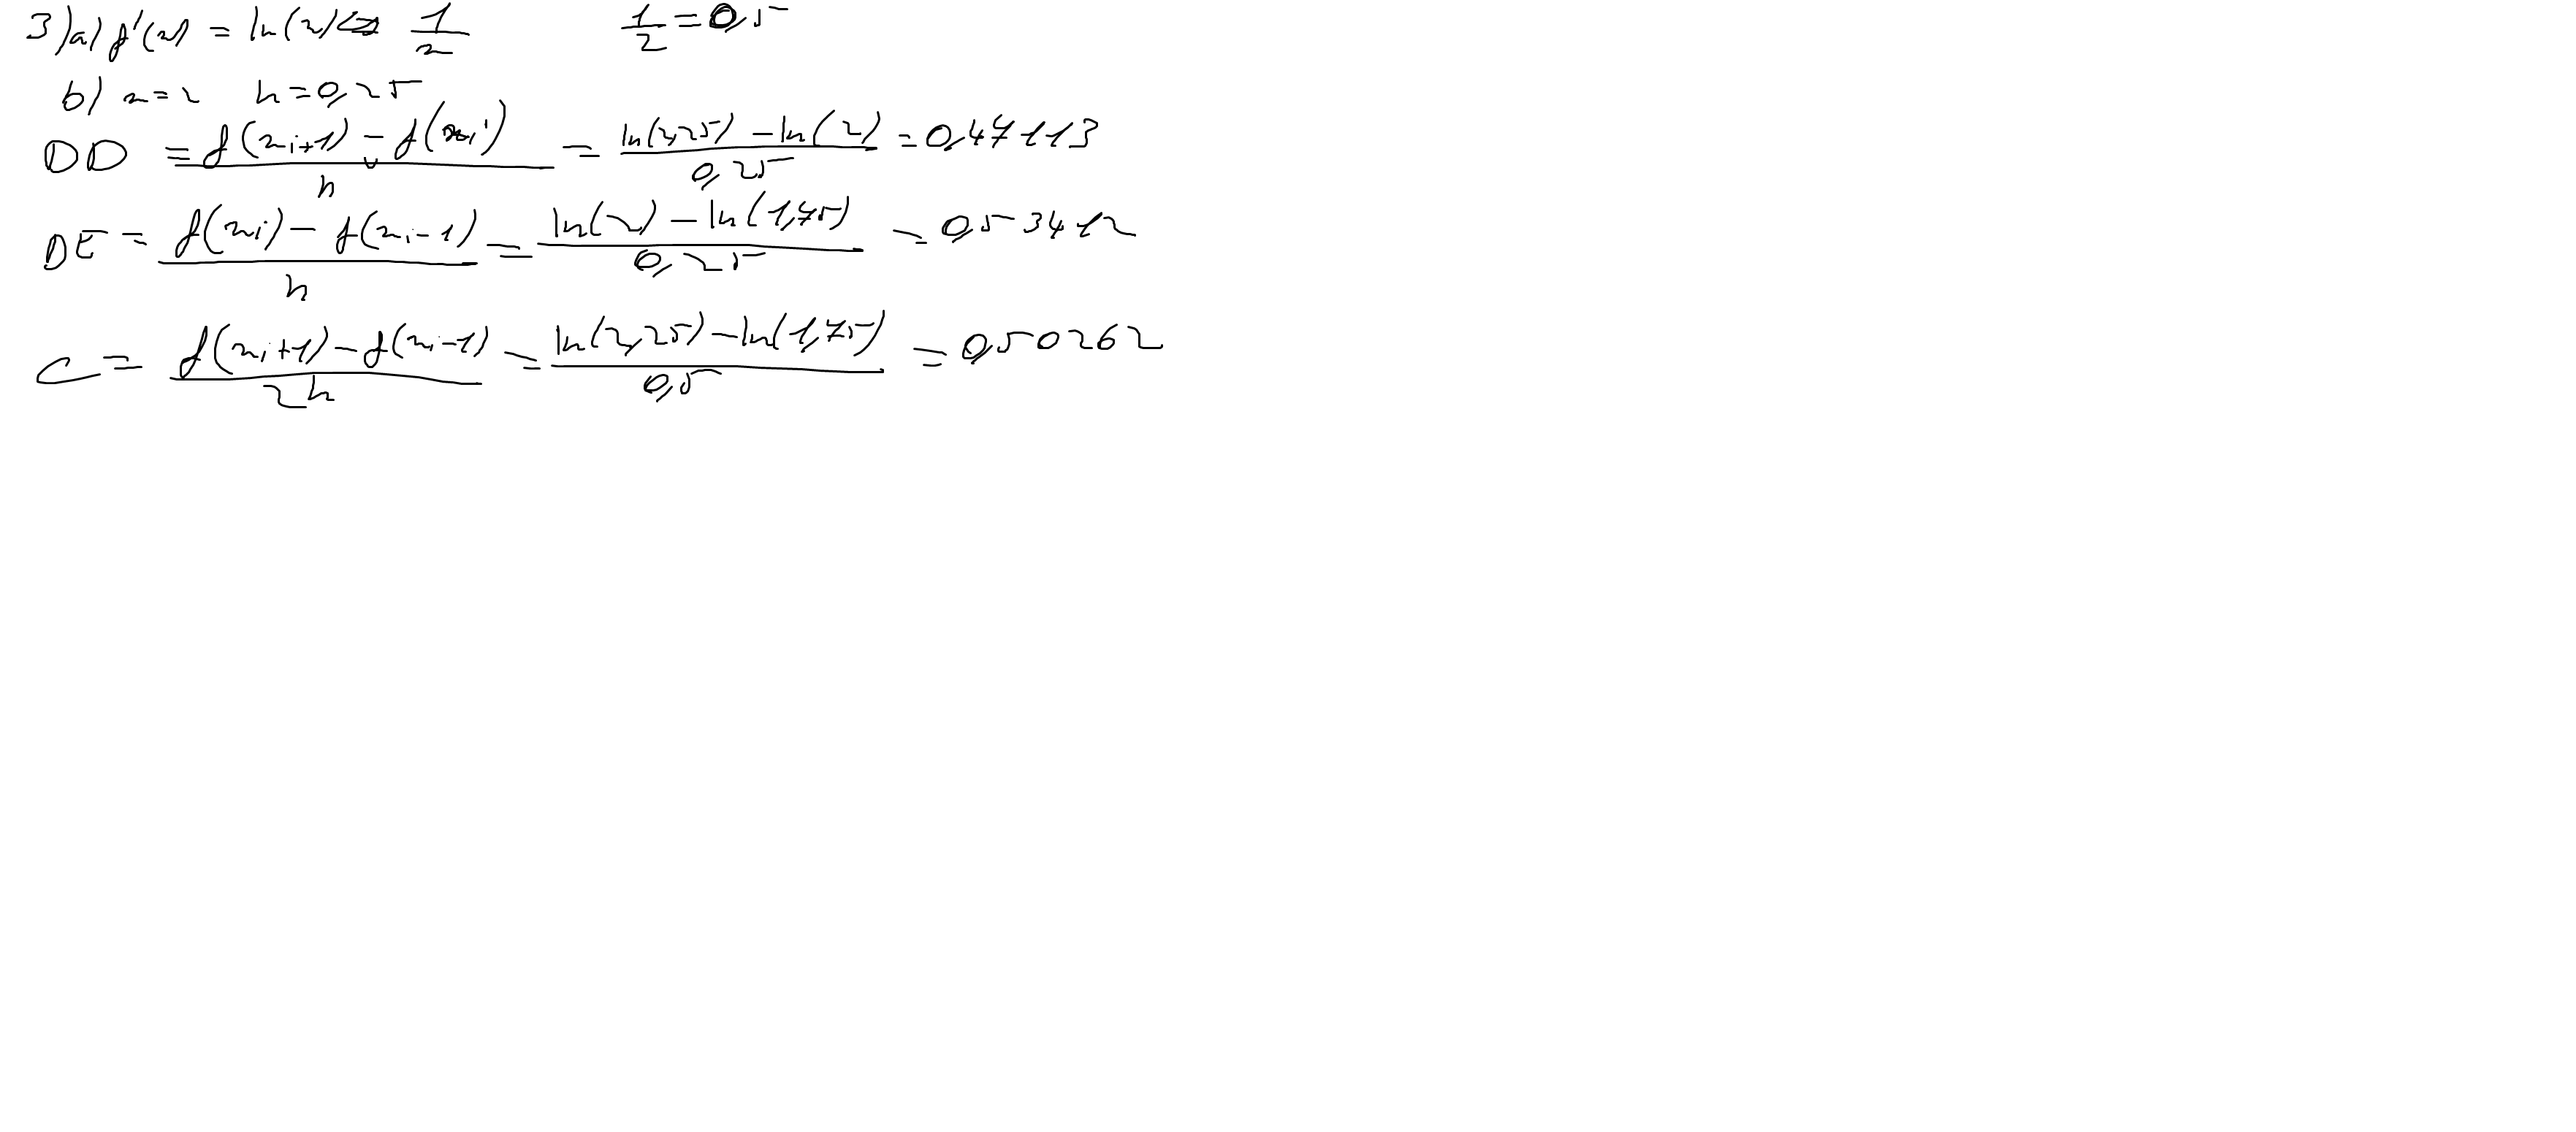 3) a) f'(x) = ln(x) <=> 1/x    1/2 = 0,5
b) x = 2    h = 0,25
DD = (f(xi+1) - f(xi))/h = (ln(2,25) - ln(2))/0,25 = 0,47113
DE = (f(xi) - f(xi-1))/h = (ln(2) - ln(1,75))/0,25 = 0,53412
C = (f(xi+1) - f(xi-1))/2h = (ln(2,25) - ln(1,75))/0,5 = 0,50262